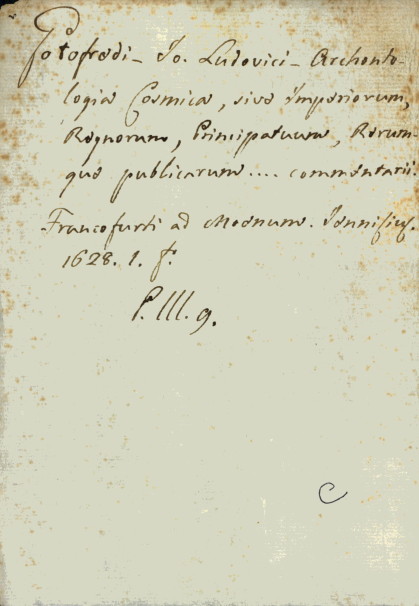 Gotofredi - Jo. Ludovici - Archonto-
logia Cosmica, sive Imperiorum,
Regnorum, Principatuum, Rerum-
que publicarum .... commentarii.
Francofurti ad Moenum. Jennisius.
1628. 1. f.
P. III. 9.
C